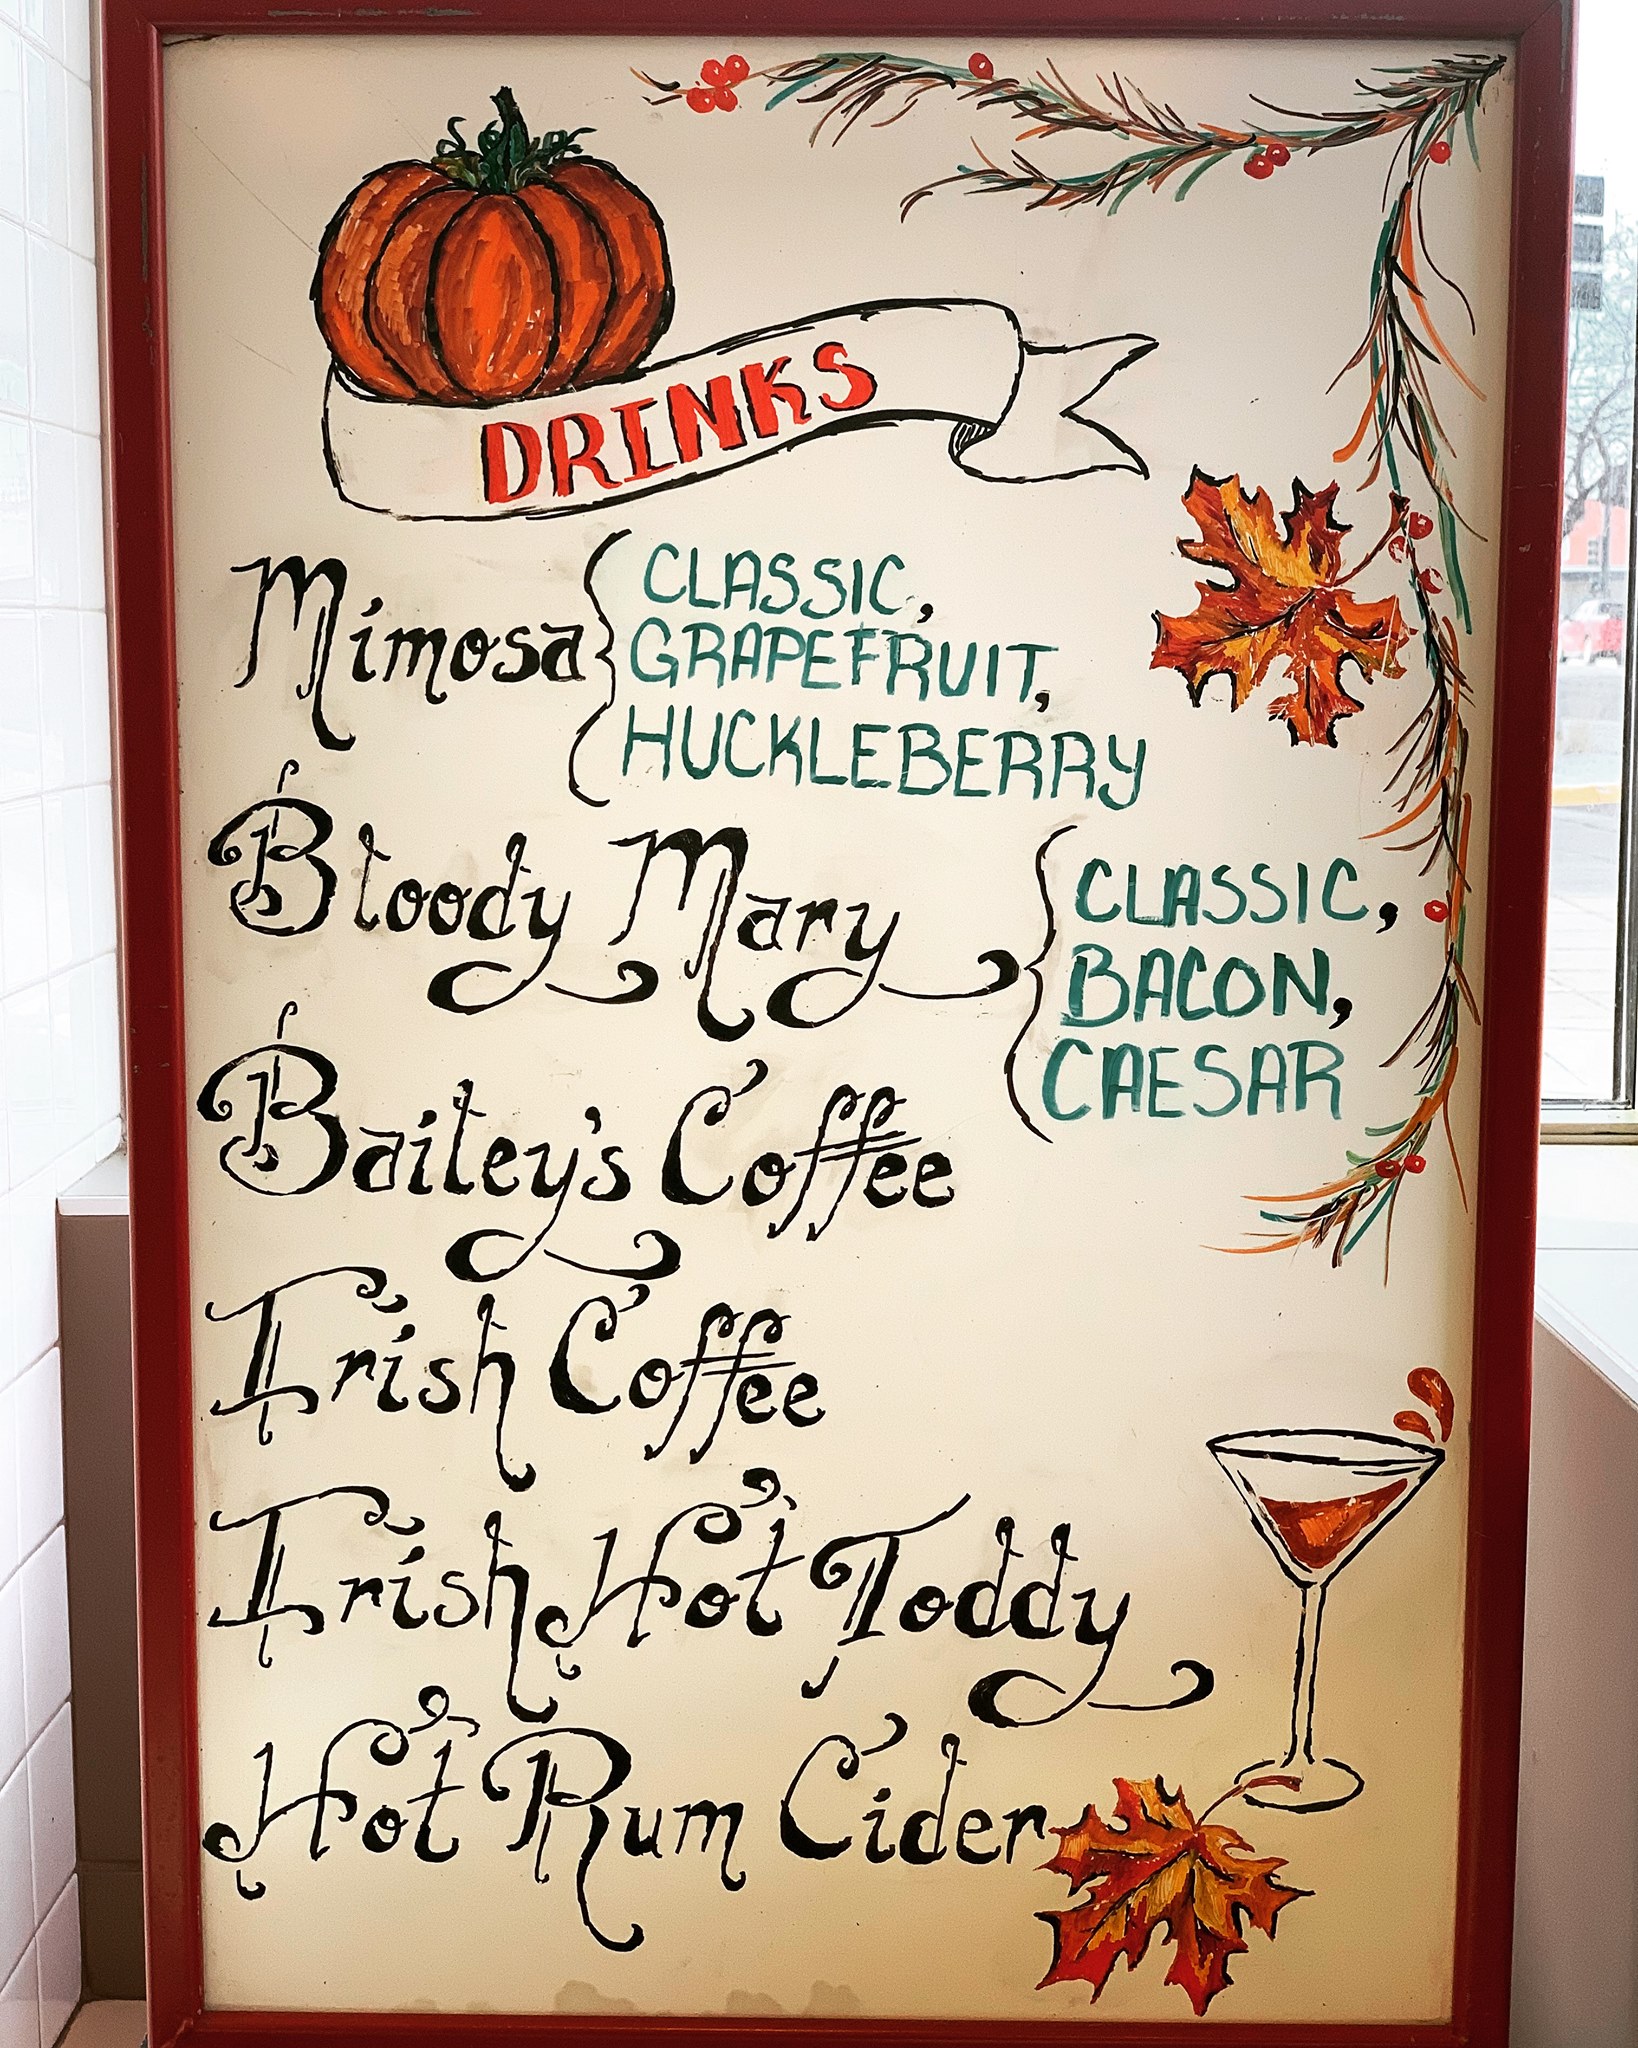 DRINKS
Mimosa { CLASSIC,
GRAPEFRUIT,
HUCKLEBERRY
Bloody Mary { CLASSIC,
BACON,
CAESAR
Bailey's Coffee
Irish Coffee
Irish Hot Toddy
Hot Rum Cider